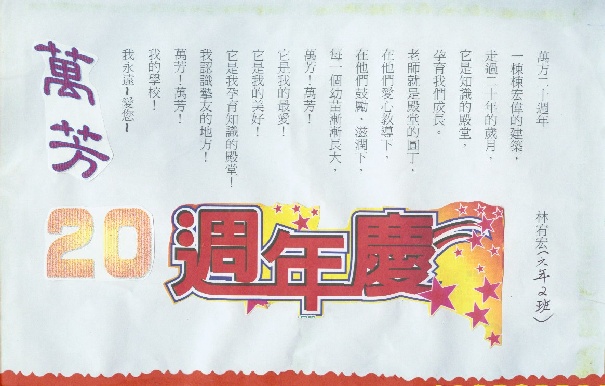 萬方二十週年
林宥宏(六年2班)
一棟棟宏偉的建築，
走過二十年的歲月，
它是知識的殿堂，
孕育我們成長。
老師就是殿堂的園丁，
在他們愛心教導下，
在他們鼓勵、滋潤下，
每一個幼苗漸漸長大，
萬方！萬芳！
它是我的最愛！
它是我的美好！
它是我孕育知識的殿堂！
我認識摯友的地方！
萬芳！萬芳！
我的學校！
我永遠~愛您~
萬芳
20
週年慶